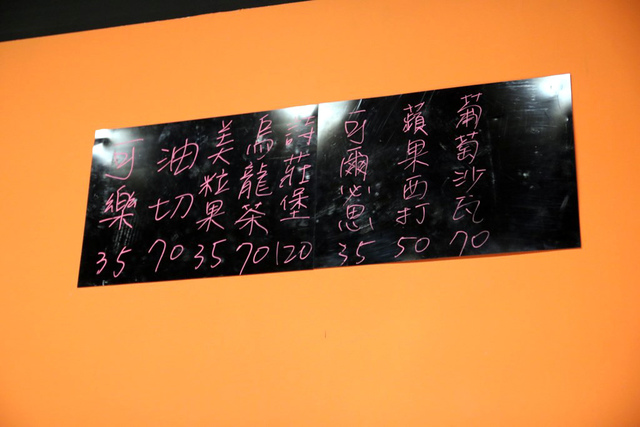 葡萄沙瓦 70
蘋果西打 50
可爾必思 35
詩莊堡 120
烏龍茶 70
美粒果 35
油切 70
可樂 35